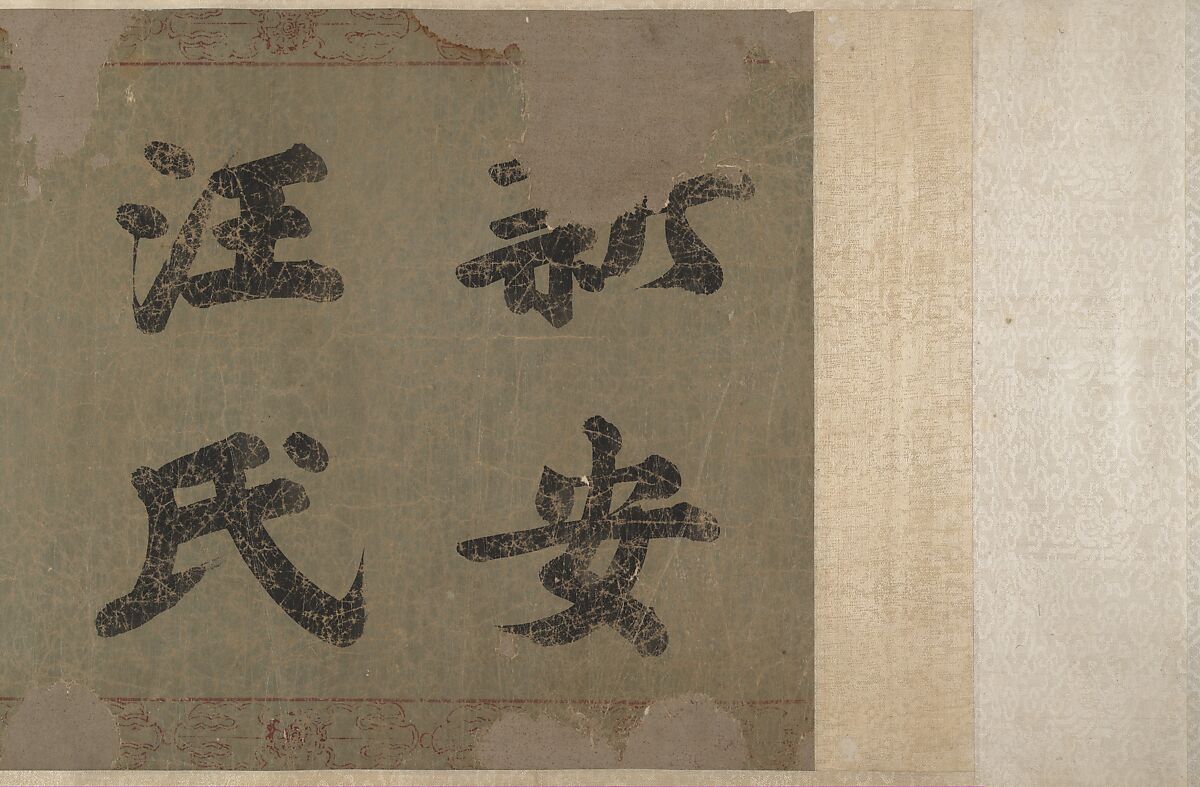 新安
汪氏